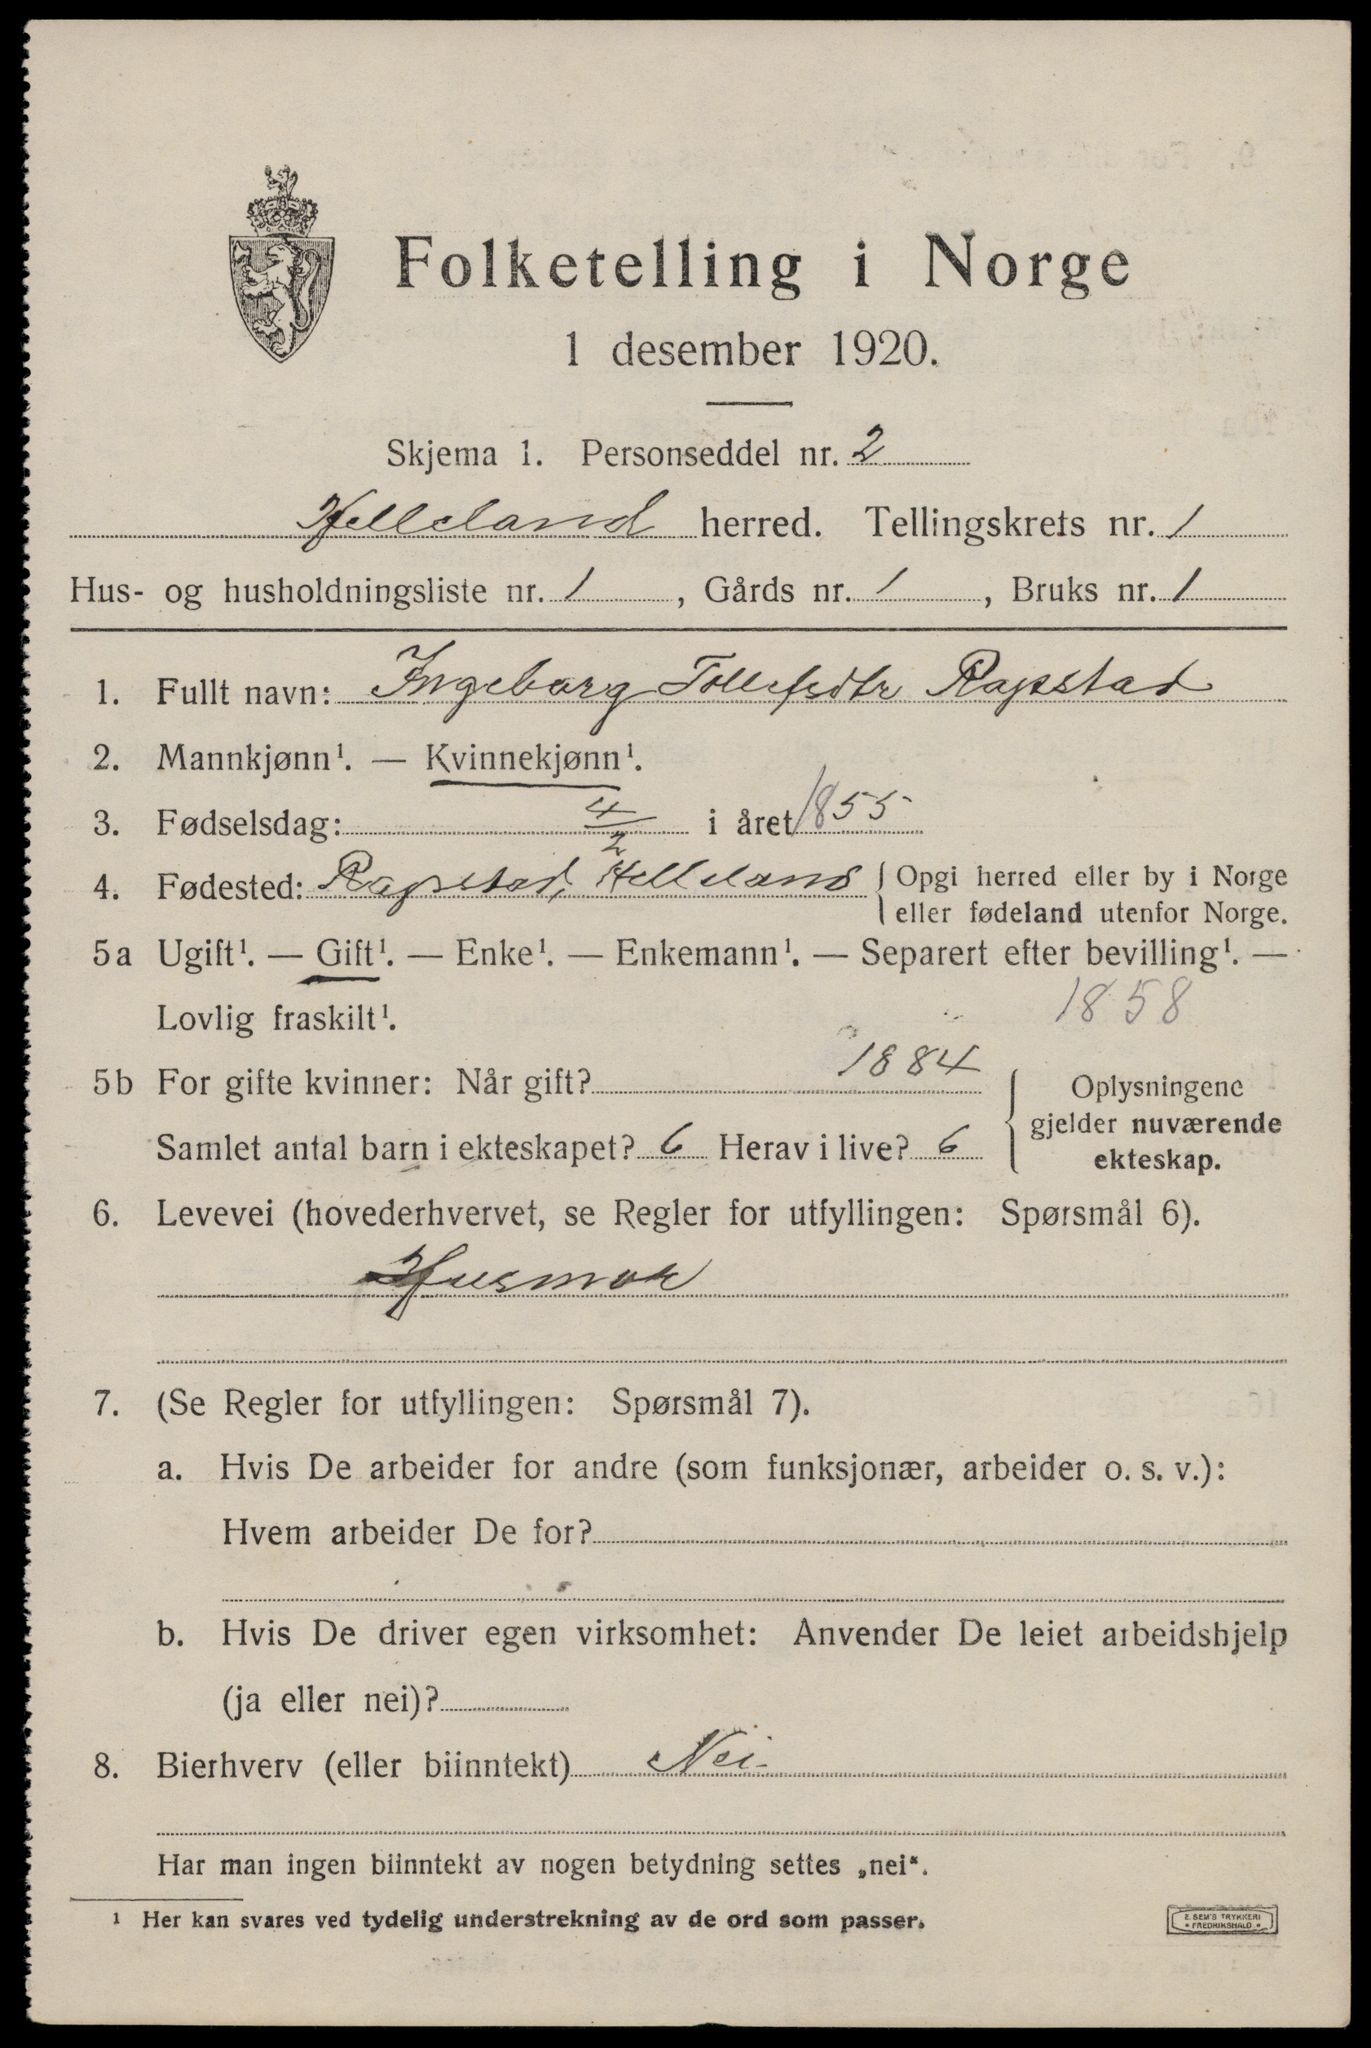 Folketelling i Norge
1 desember 1920.
Skjema 1. Personseddel nr. 2
Helleland herred. Tellingskrets nr. 1
Hus- og husholdningsliste nr. 1, Gårds nr. 1, Bruks nr. 1
1. Fullt navn: Ingeborg Tollefsdtr Rapstad
2. Mannkjønn¹. — Kvinnekjønn¹.
3. Fødselsdag: 4/2 i året 1855
4. Fødested: Rapstad, Helleland { Opgi herred eller by i Norge
eller fødeland utenfor Norge.
5a Ugift¹. — Gift¹. — Enke¹. — Enkemann¹. — Separert efter bevilling¹. —
Lovlig fraskilt¹. 1858
5b For gifte kvinner: Når gift? 1884
Samlet antal barn i ekteskapet? 6 Herav i live? 6
{ Oplysningene
gjelder nuværende
ekteskap.
6. Levevei (hovederhvervet, se Regler for utfyllingen: Spørsmål 6).
Husmor
7. (Se Regler for utfyllingen: Spørsmål 7).
a. Hvis De arbeider for andre (som funksjonær, arbeider o. s. v.):
Hvem arbeider De for?
b. Hvis De driver egen virksomhet: Anvender De leiet arbeidshjelp
(ja eller nei)?
8. Bierhverv (eller biinntekt) Nei
Har man ingen biinntekt av nogen betydning settes „nei“.
¹ Her kan svares ved tydelig understrekning av de ord som passer.
E. SEM'S TRYKKERI
* FREDRIKSHALD *